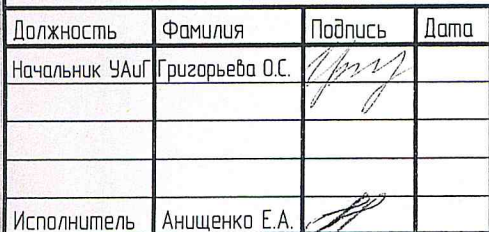 Должность Фамилия Подпись Дата
Начальник УАиГ Григорьева О.С.
Исполнитель Анищенко Е.А.